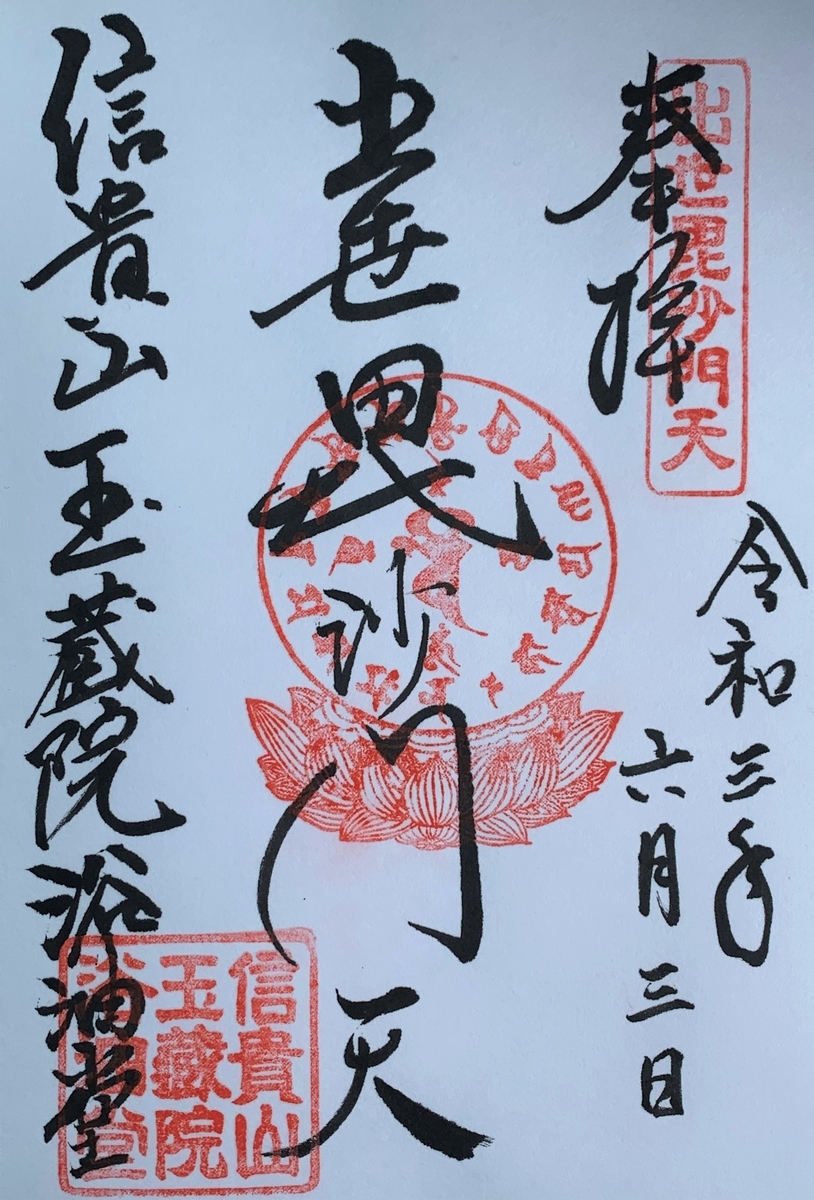 出世毘沙門天
奉拝
令和三年
六月三日
出世毘沙門天
信貴山玉蔵院浴油堂
信貴山
玉藏院
浴油堂